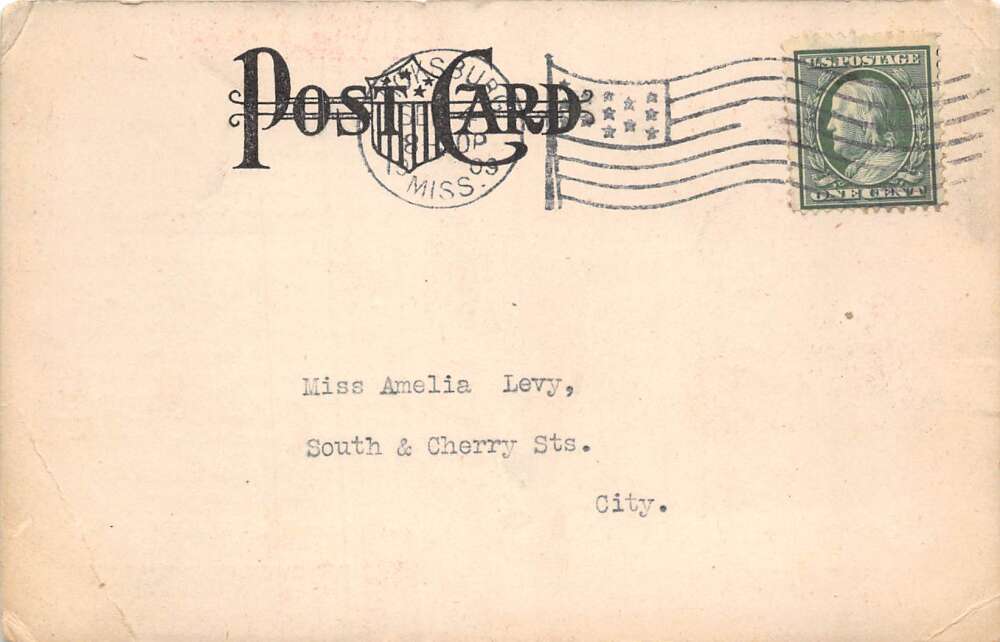 POST CARD
VICKSBURG
MISS.
U.S. POSTAGE
ONE CENT
Miss Amelia Levy,
South & Cherry Sts.
City.